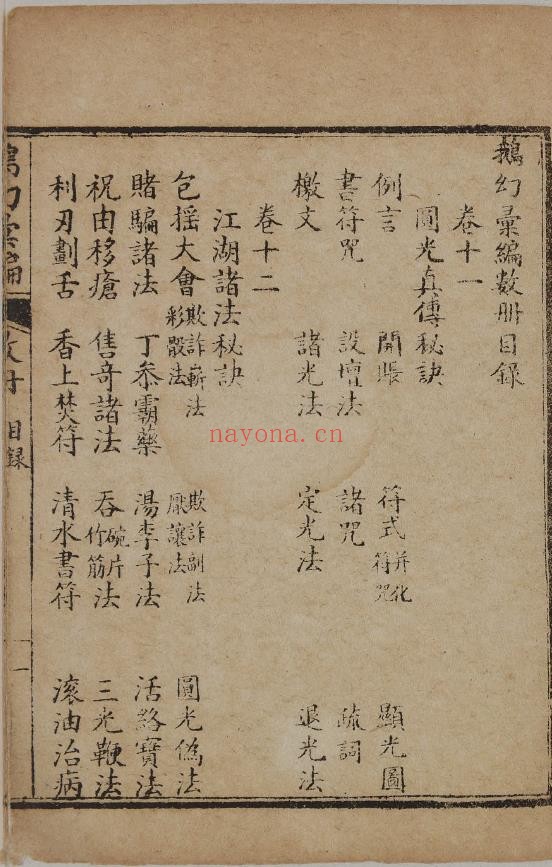 鵝幻彙編数册目錄
卷十一
圓光真傳秘訣
例言 開賬 符式 并化符咒 顯光圖
書符咒 設壇法 諸咒 疏詞
檄文 諸光法 定光法 退光法
卷十二
江湖諸法秘訣
包摇大會 欺詐法 彩骰法 欺詐副法 厭讓法 圓光偽法
賭騙諸法 丁叅霸藥 湯李子法 活絡寶法
祝由移瘡 售奇諸法 吞碗片竹筋法 三光鞭法
利刃劃舌 香上焚符 清水書符 滚油治病
目錄
一
nayona.cn